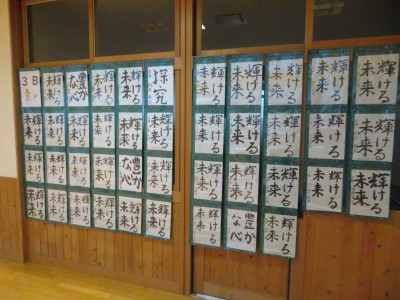 3B
輝ける
未来
豊かな心
輝ける
未来
輝ける
未来
探究
輝ける
未来
輝ける
未来
輝ける
未来
輝ける
未来
輝ける
未来
輝ける
未来
輝ける
未来
輝ける
未来
輝ける
未来
輝ける
未来
豊かな心
輝ける
未来
輝ける
未来
輝ける
未来
輝ける
未来
輝ける
未来
輝ける
未来
輝ける
未来
輝ける
未来
輝ける
未来
輝ける
未来
輝ける
未来
輝ける
未来
輝ける
未来
輝ける
未来
輝ける
未来
輝ける
未来
輝ける
未来
輝ける
未来
輝ける
未来
輝ける
未来
輝ける
未来
輝ける
未来
輝ける
未来
豊かな心
輝ける
未来